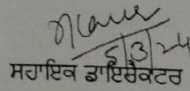 6/3/24
ਸਹਾਇਕ ਡਾਇਰੈਕਟਰ